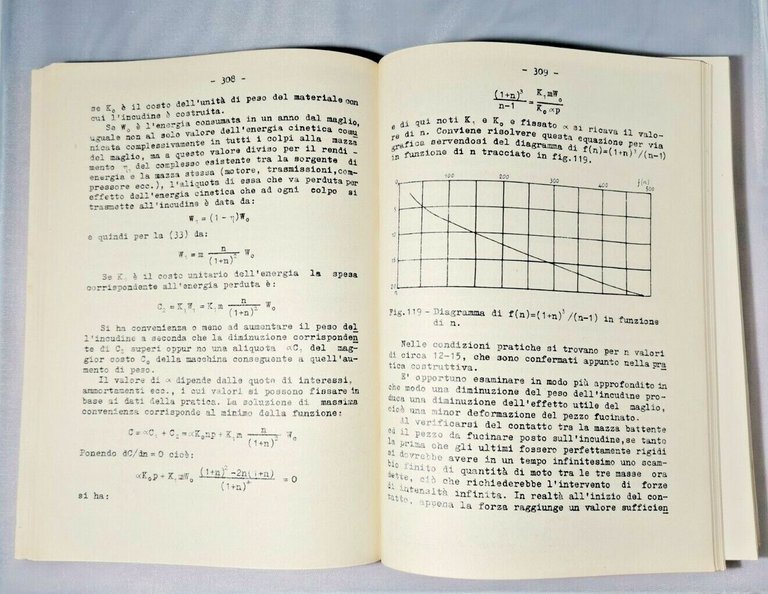 - 308 -
se K₀ è il costo dell'unità di peso del materiale con
cui l'incudine è costruita.
Se W₀ è l'energia consumata in un anno dal maglio,
uguale non al solo valore dell'energia cinetica comu
nicata complessivamente in tutti i colpi alla mazza
del maglio, ma a questo valore diviso per il rendi -
mento η del complesso esistente tra la sorgente di
energia e la mazza stessa (motore, trasmissioni, com-
pressore ecc.), l'aliquota di essa che va perduta per
effetto dell'energia cinetica che ad ogni colpo si
trasmette all'incudine è data da:
W₁ = (1 - η)W₀
e quindi per la (33) da:
W₁ = m n/(1+n)² W₀
Se K₁ è il costo unitario dell'energia la spesa
corrispondente all'energia perduta è:
C₂ = K₁W₁ = K₁m n/(1+n)² W₀
Si ha convenienza o meno ad aumentare il peso del
l'incudine a seconda che la diminuzione corrisponden
te di C₂ superi oppur no una aliquota αC₁ del mag-
gior costo C₁ della macchina conseguente a quell'au-
mento di peso.
Il valore di α dipende dalle quote di interessi,
ammortamenti ecc., i cui valori si possono fissare in
base ai dati della pratica. La soluzione di massima
convenienza corrisponde al minimo della funzione:
C = αC₁ + C₂ = αK₀np + K₁m n/(1+n)² W₀
Ponendo dC/dn = 0 cioè:
αK₀p + K₁mW₀ (1+n)² - 2n(1+n)/(1+n)⁴ = 0
si ha:
- 309 -
(1+n)³/n-1 = K₁mW₀/K₀αp
e di qui noti K₁ e K₀ e fissato α si ricava il valo-
re di n. Conviene risolvere questa equazione per via
grafica servendosi del diagramma di f(n)=(1+n)³/(n-1)
in funzione di n tracciato in fig.119.
0 100 200 300 400 f(n) 500
5
10
15
20
Fig.119 - Diagramma di f(n)=(1+n)³/(n-1) in funzione
di n.
Nelle condizioni pratiche si trovano per n valori
di circa 12-15, che sono confermati appunto nella pra
tica costruttiva.
E' opportuno esaminare in modo più approfondito in
che modo una diminuzione del peso dell'incudine pro-
duca una diminuzione dell'effetto utile del maglio,
cioè una minor deformazione del pezzo fucinato.
Al verificarsi del contatto tra la mazza battente
ed il pezzo da fucinare posto sull'incudine, se tanto
la prima che gli ultimi fossero perfettamente rigidi
si dovrebbe avere in un tempo infinitesimo uno scam-
bio finito di quantità di moto tra le tre masse ora
dette, ciò che richiederebbe l'intervento di forze
di intensità infinita. In realtà all'inizio del con-
tatto, appena la forza raggiunge un valore sufficien